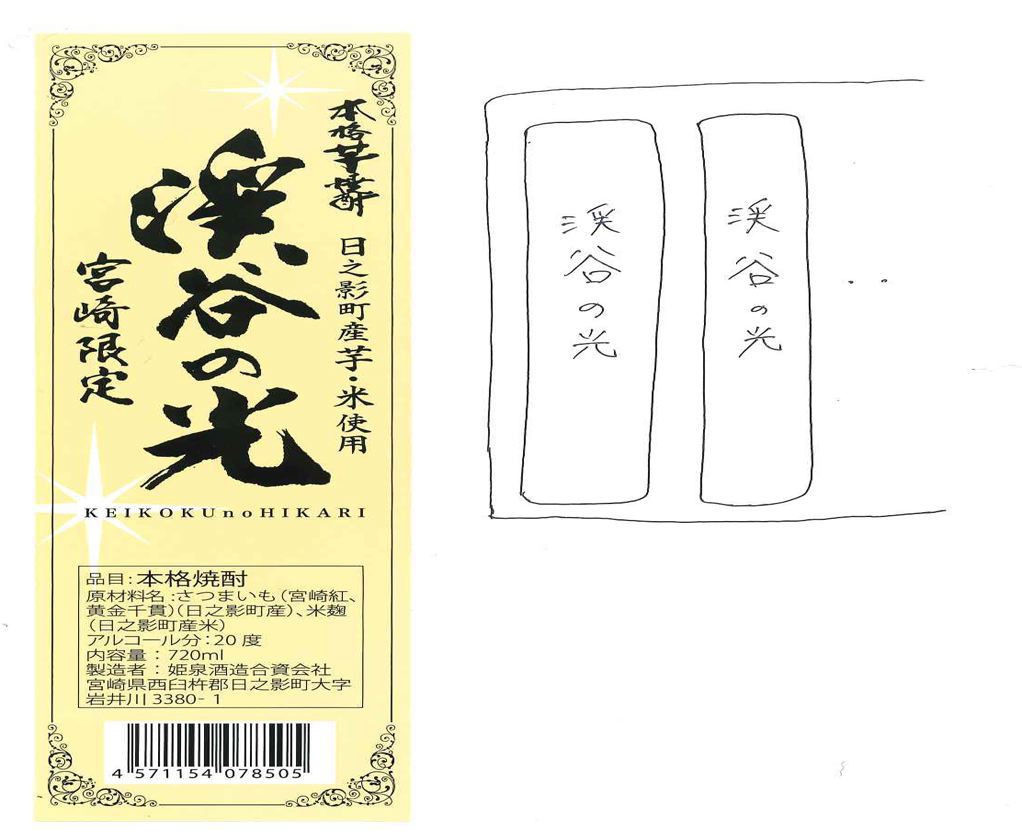 本格芋焼酎
日之影町産芋・米使用
渓谷の光
宮崎限定
KEIKOKUnoHIKARI
品目：本格焼酎
原材料名：さつまいも（宮崎紅、
黄金千貫）（日之影町産）、米麹
（日之影町産米）
アルコール分：20 度
内容量：720ml
製造者：姫泉酒造合資会社
宮崎県西臼杵郡日之影町大字
岩井川 3380- 1
4 571154 078505
渓谷の光
渓谷の光